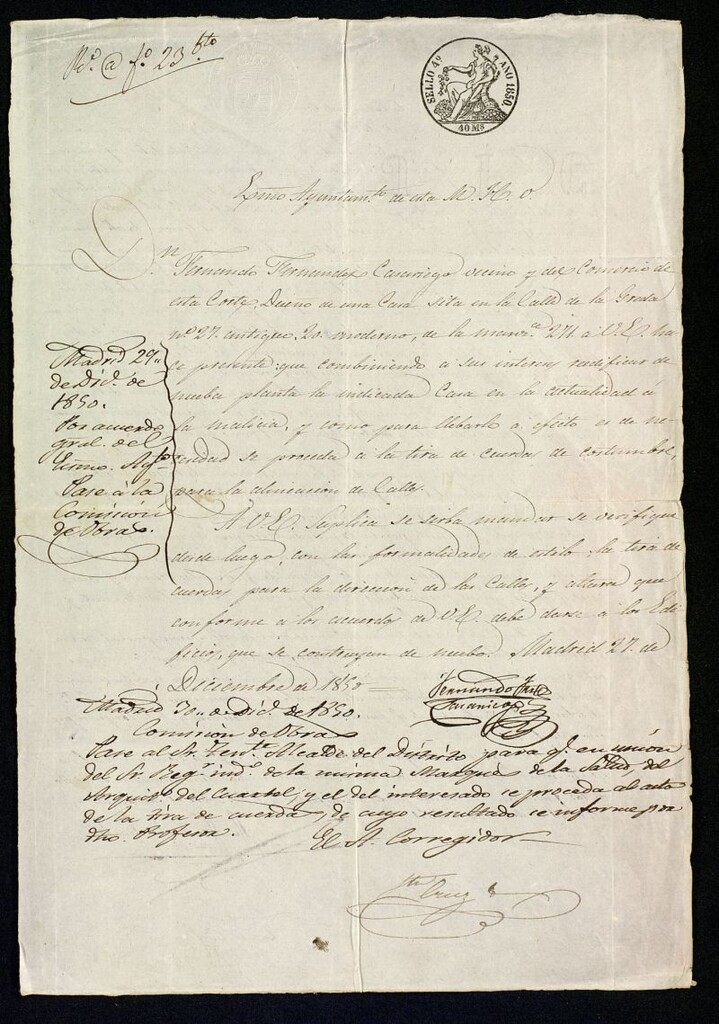 Rdo. @ fo. 23 vto
SELLO 4º AÑO 1850.
40 Ms
Exmo Ayuntamto de esta M. H. V.
Dn. Fernando Fernandez Casariego vecino y del Comercio de
esta Corte, Dueño de una Casa sita en la Calle de la Greda
nº 27. antiguo, 20. moderno, de la manza 271. á V.E. ha-
ce presente: que combiniendo á sus interes reedificar de
nueba planta la indicada Casa en la actualidad á
la malicia, y como para llebarlo á efecto es de ne-
cesidad se proceda á la tira de cuerdas de costumbre,
para la alineacion de Calles.
A V.E. Suplica se sirba mandar se verifique
desde luego, con las formalidades de estilo, la tira de
cuerdas para la direccion de las Calles, y altura que
conforme á los acuerdos de V.E. debe darse á los Edi-
ficios, que se contruyan de nuebo. Madrid 27. de
Diciembre de 1850
Fernando Fernz
Casariego
Madrid 29..
de Dice. de
1850.
Por acuerdo
gral. del
Exmo. Ayto
Pase á la
Comisión
de Obras.
Madrid 30.. de Dice. de 1850.
Comision de Obras
Pase al Sr. Tente. Alcalde del Distrito para q. en union
del Sr. Regr. indo. de la misma Marques de la Salud, del
Arquito. del Cuartel, y el del interesado se proceda al acto
de la tira de cuerdas, de cuyo resultado se informe por
dho. Profesor.
El A. Corregidor
Sta Cruz